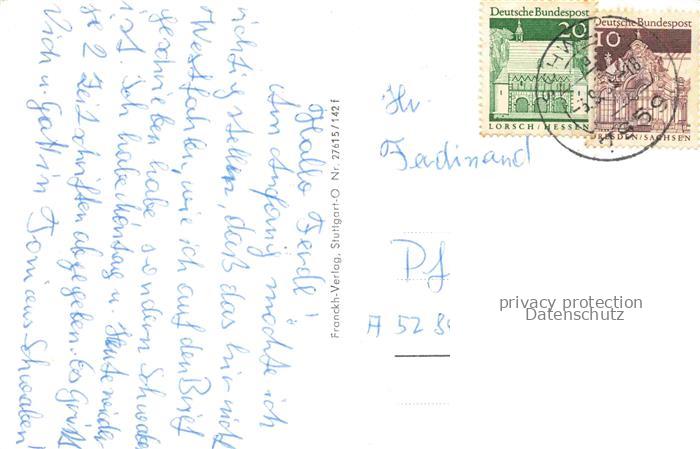 Hallo Ferdl!
Am Anfang möchte ich
richtig stellen, daß das hier nicht
Westfahlen, wie ich auf den Brief
geschrieben habe sondern Schwaben
ist. Ich habe Montag u. Heute wieder
je 2 Zeitschriften abgegeben. Es Grüßt
Dich u. Gattin Toni aus Schwaben!
Franckh-Verlag, Stuttgart-O Nr. 27615/142f
Deutsche Bundespost
20
LORSCH/HESSEN
Deutsche Bundespost
10
DRESDEN/SACHSEN
Hr.
Ferdinand
Pf
A 52
privacy protection
Datenschutz